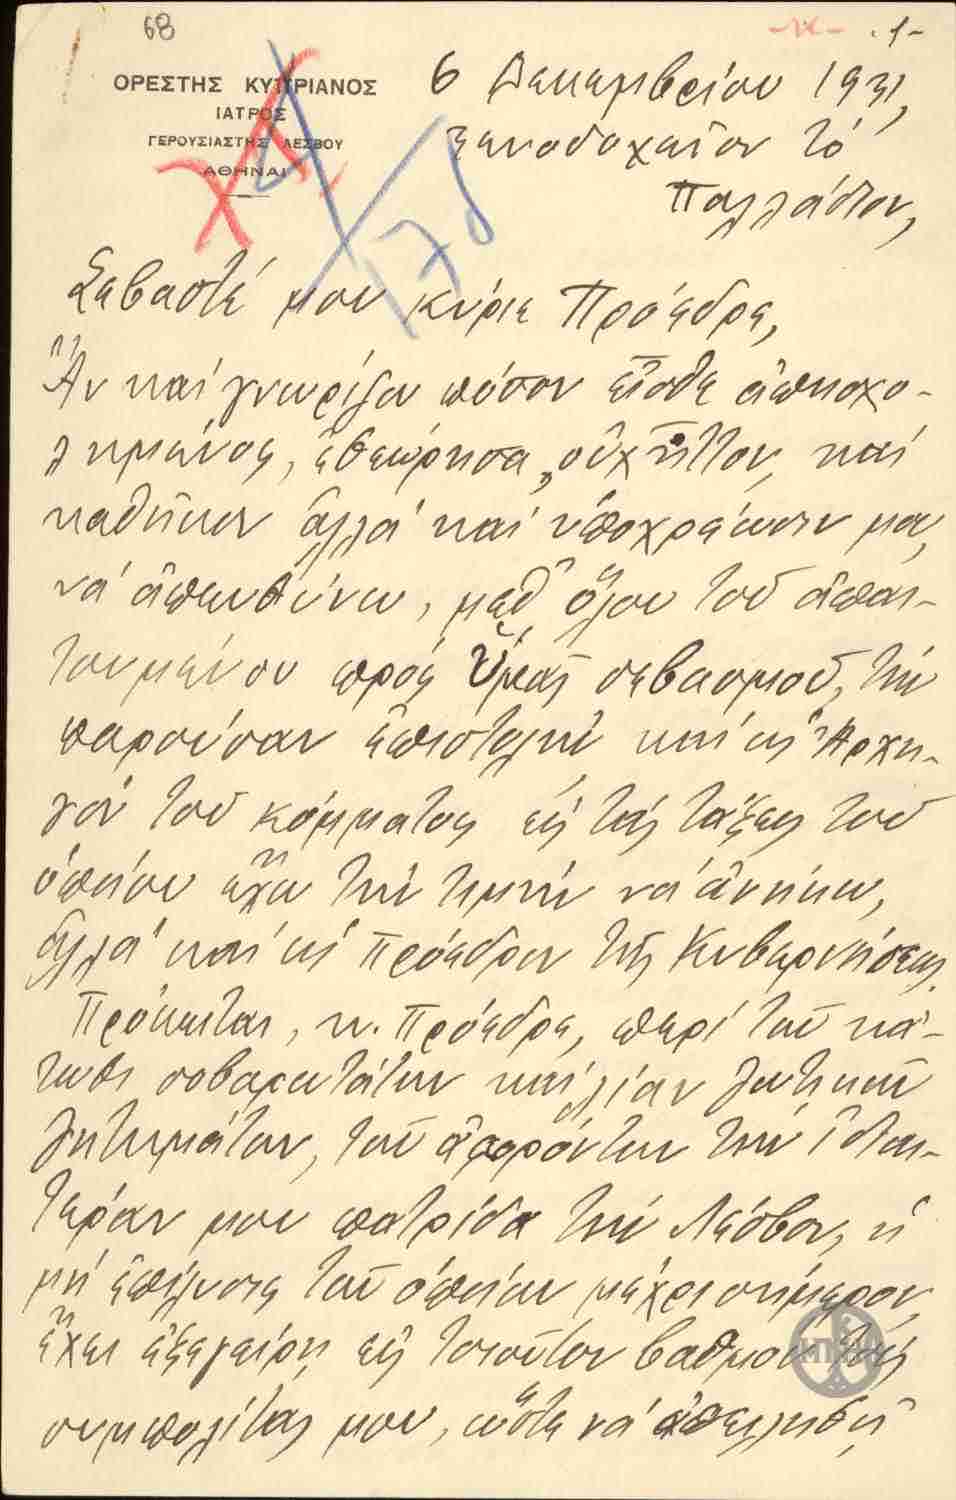 68
-1-
ΟΡΕΣΤΗΣ ΚΥΠΡΙΑΝΟΣ
ΙΑΤΡΟΣ
ΓΕΡΟΥΣΙΑΣΤΗΣ ΛΕΣΒΟΥ
ΑΘΗΝΑΙ
6 Δεκεμβρίου 1931,
Ξενοδοχεῖον τὸ
Παλλάδιον,
Σεβαστέ μου κύριε Πρόεδρε,
Ἂν καὶ γνωρίζω πόσον εἶσθε ἀπησχο-
λημένος, ἐθεώρησα, οὐχ ἧττον, καὶ
καθῆκον ἀλλὰ καὶ ὑποχρέωσίν μου,
νὰ ἀπευθύνω, μεθ' ὅλου τοῦ ἀπαι-
τουμένου πρὸς Ὑμᾶς σεβασμοῦ, τὴν
παροῦσαν ἐπιστολὴν καὶ ὡς Ἀρχη-
γὸν τοῦ κόμματος εἰς τὰς τάξεις τοῦ
ὁποίου ἔχω τὴν τιμὴν νὰ ἀνήκω,
ἀλλὰ καὶ ὡς Πρόεδρον τῆς Κυβερνήσεως.
Πρόκειται, κ. Πρόεδρε, περὶ τῶν κά-
τωθι σοβαρωτάτων καὶ λίαν ζωτικῶν
ζητημάτων, τῶν ἀφορώντων τὴν ἰδιαι-
τέραν μου πατρίδα τὴν Λέσβον, ἡ
μὴ ἐπίλυσις τῶν ὁποίων μέχρι σήμερον
ἔχει ἐξεγείρει εἰς τοιοῦτον βαθμὸν τοὺς
συμπολίτας μου, ὥστε νὰ ἀπειληθῇ